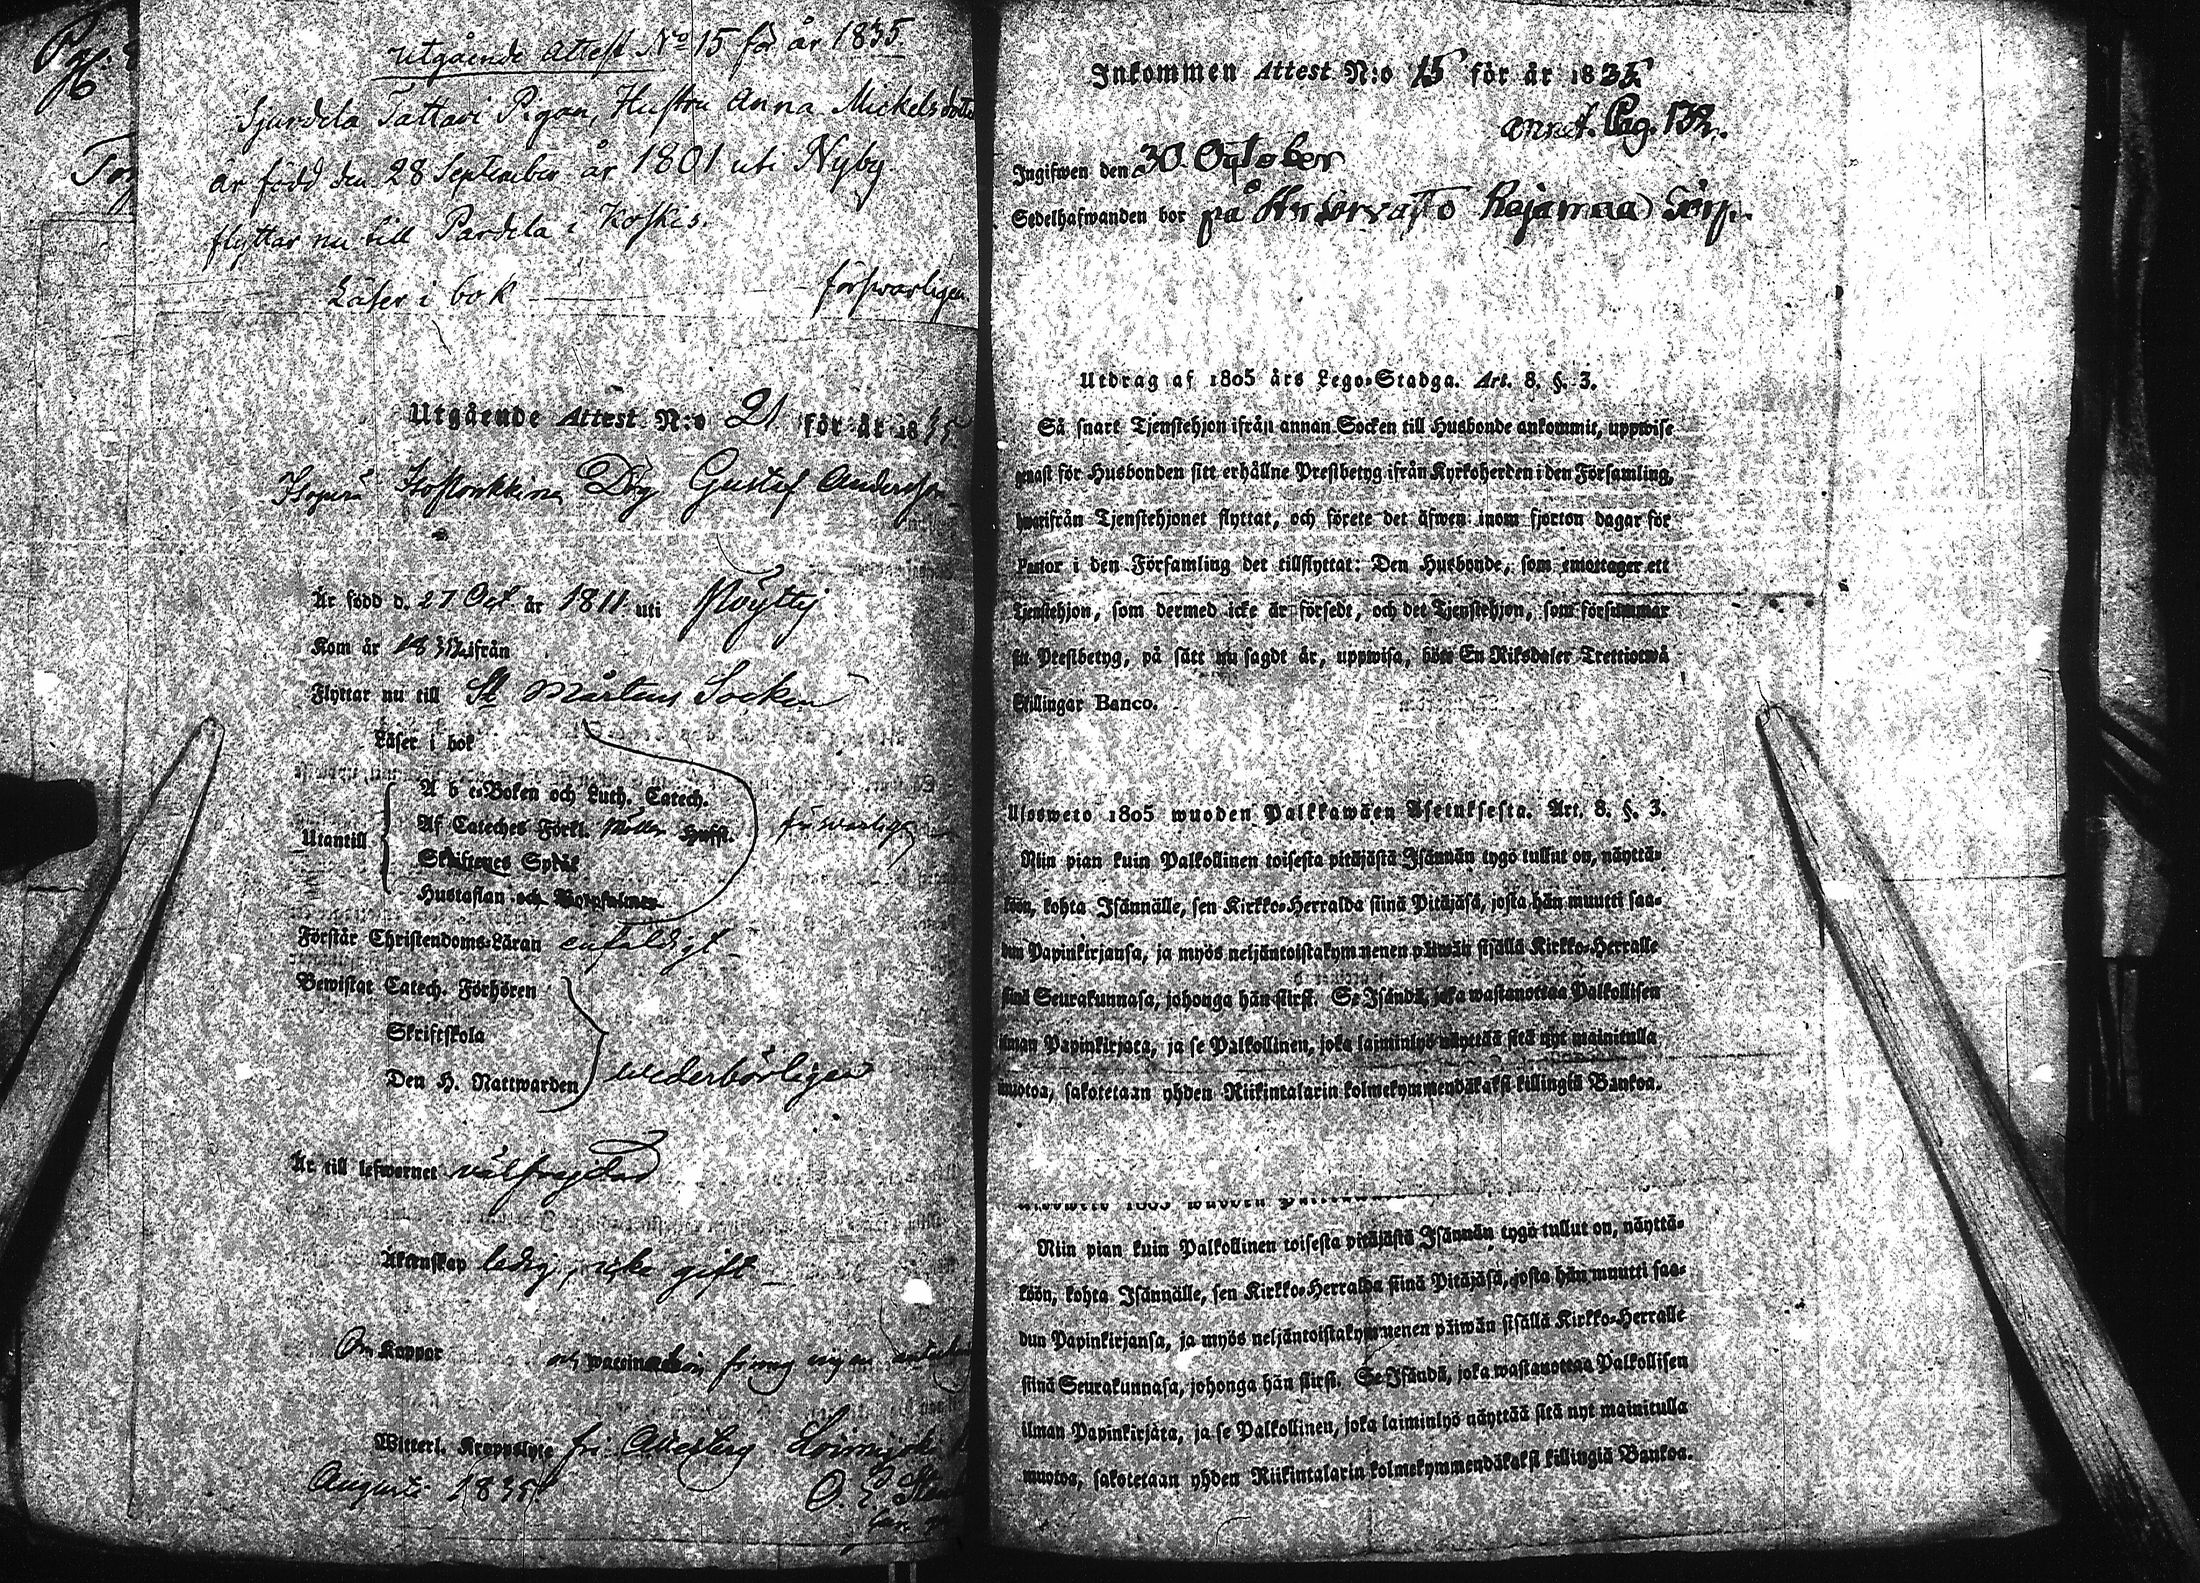 Utgående Attest No 15 för år 1835.
Sjurdela Tattari Pigan, Hustru Anna Mickelsdotter
är född den 28 September år 1801 uti Nyby
flyttar nu till Pardela i Koskis.
Läser i bok försvarligen
Utgående Attest N:o 21 för år 1835
Dräng Gustaf Andersson
Är född d. 27 Oct. år 1811 uti Pöyttij
Kom år 18 ifrån
Flyttar nu till St Mårtens Socken
Läser i bok
A b c-Boken och Luth. Catech.
Af Cateches Förkl. försvarligt
Utantill
Skriftenes Språk
Hustaflan och Botpsalmer
Förstår Christendoms-Läran enfaldigt
Bewistat Catech. Förhören
Skriftskola
Den H. Nattwarden wederbörligen
Är till lefwernet välfrejdad
Äktenskap ledig, icke gift
Om Koppor och waccination finnes ingen
Witterl. Kroppslyte fri. Attesterg Loimijoki
Augusti 1835.
Inkommen Attest N:o 15 för år 1835
annot. Pag. 132.
Ingifwen den 30. October
Sedelhafwanden bor på
Utdrag af 1805 års Lego-Stadga. Art. 8. §. 3.
Så snart Tjenstehjon ifrån annan Socken till Husbonde ankommit, uppwise
genast för Husbonden sitt erhållne Prestbetyg ifrån Kyrkoherden i den Församling,
hwarifrån Tjenstehjonet flyttat, och förete det äfwen inom fjorton dagar för
Pastor i den Församling det tillflyttat: Den Husbonde, som emottager ett
Tjenstehjon, som dermed icke är försedt, och det Tjenstehjon, som försummar
sitt Prestbetyg, på sätt nu sagdt är, uppwisa, böte En Riksdaler Trettiotwå
Skillingar Banco.
Ulosweto 1805 wuoden Palkkawäen Asetuksesta. Art. 8. §. 3.
Niin pian kuin Palkollinen toisesta pitäjästä Isännän tygö tullut on, näyttä-
köön, kohta Isännälle, sen Kirkko-Herralda siinä Pitäjäsä, josta hän muutti saa-
dun Papinkirjansa, ja myös neljäntoistakymmenen päiwän sisällä Kirkko-Herralle
siinä Seurakunnasa, johonga hän siirsi. Se Isändä, joka wastanottaa Palkollisen
ilman Papinkirjata, ja se Palkollinen, joka laiminlyö näyttää sitä nyt mainitulla
muotoa, sakotetaan yhden Riikintalarin kolmekymmendäkaksi killingiä Bankoa.
Niin pian kuin Palkollinen toisesta pitäjästä Isännän tygö tullut on, näyttä-
köön, kohta Isännälle, sen Kirkko-Herralda siinä Pitäjäsä, josta hän muutti saa-
dun Papinkirjansa, ja myös neljäntoistakymmenen päiwän sisällä Kirkko-Herralle
siinä Seurakunnasa, johonga hän siirsi. Se Isändä, joka wastanottaa Palkollisen
ilman Papinkirjata, ja se Palkollinen, joka laiminlyö näyttää sitä nyt mainitulla
muotoa, sakotetaan yhden Riikintalarin kolmekymmendäkaksi killingiä Bankoa.